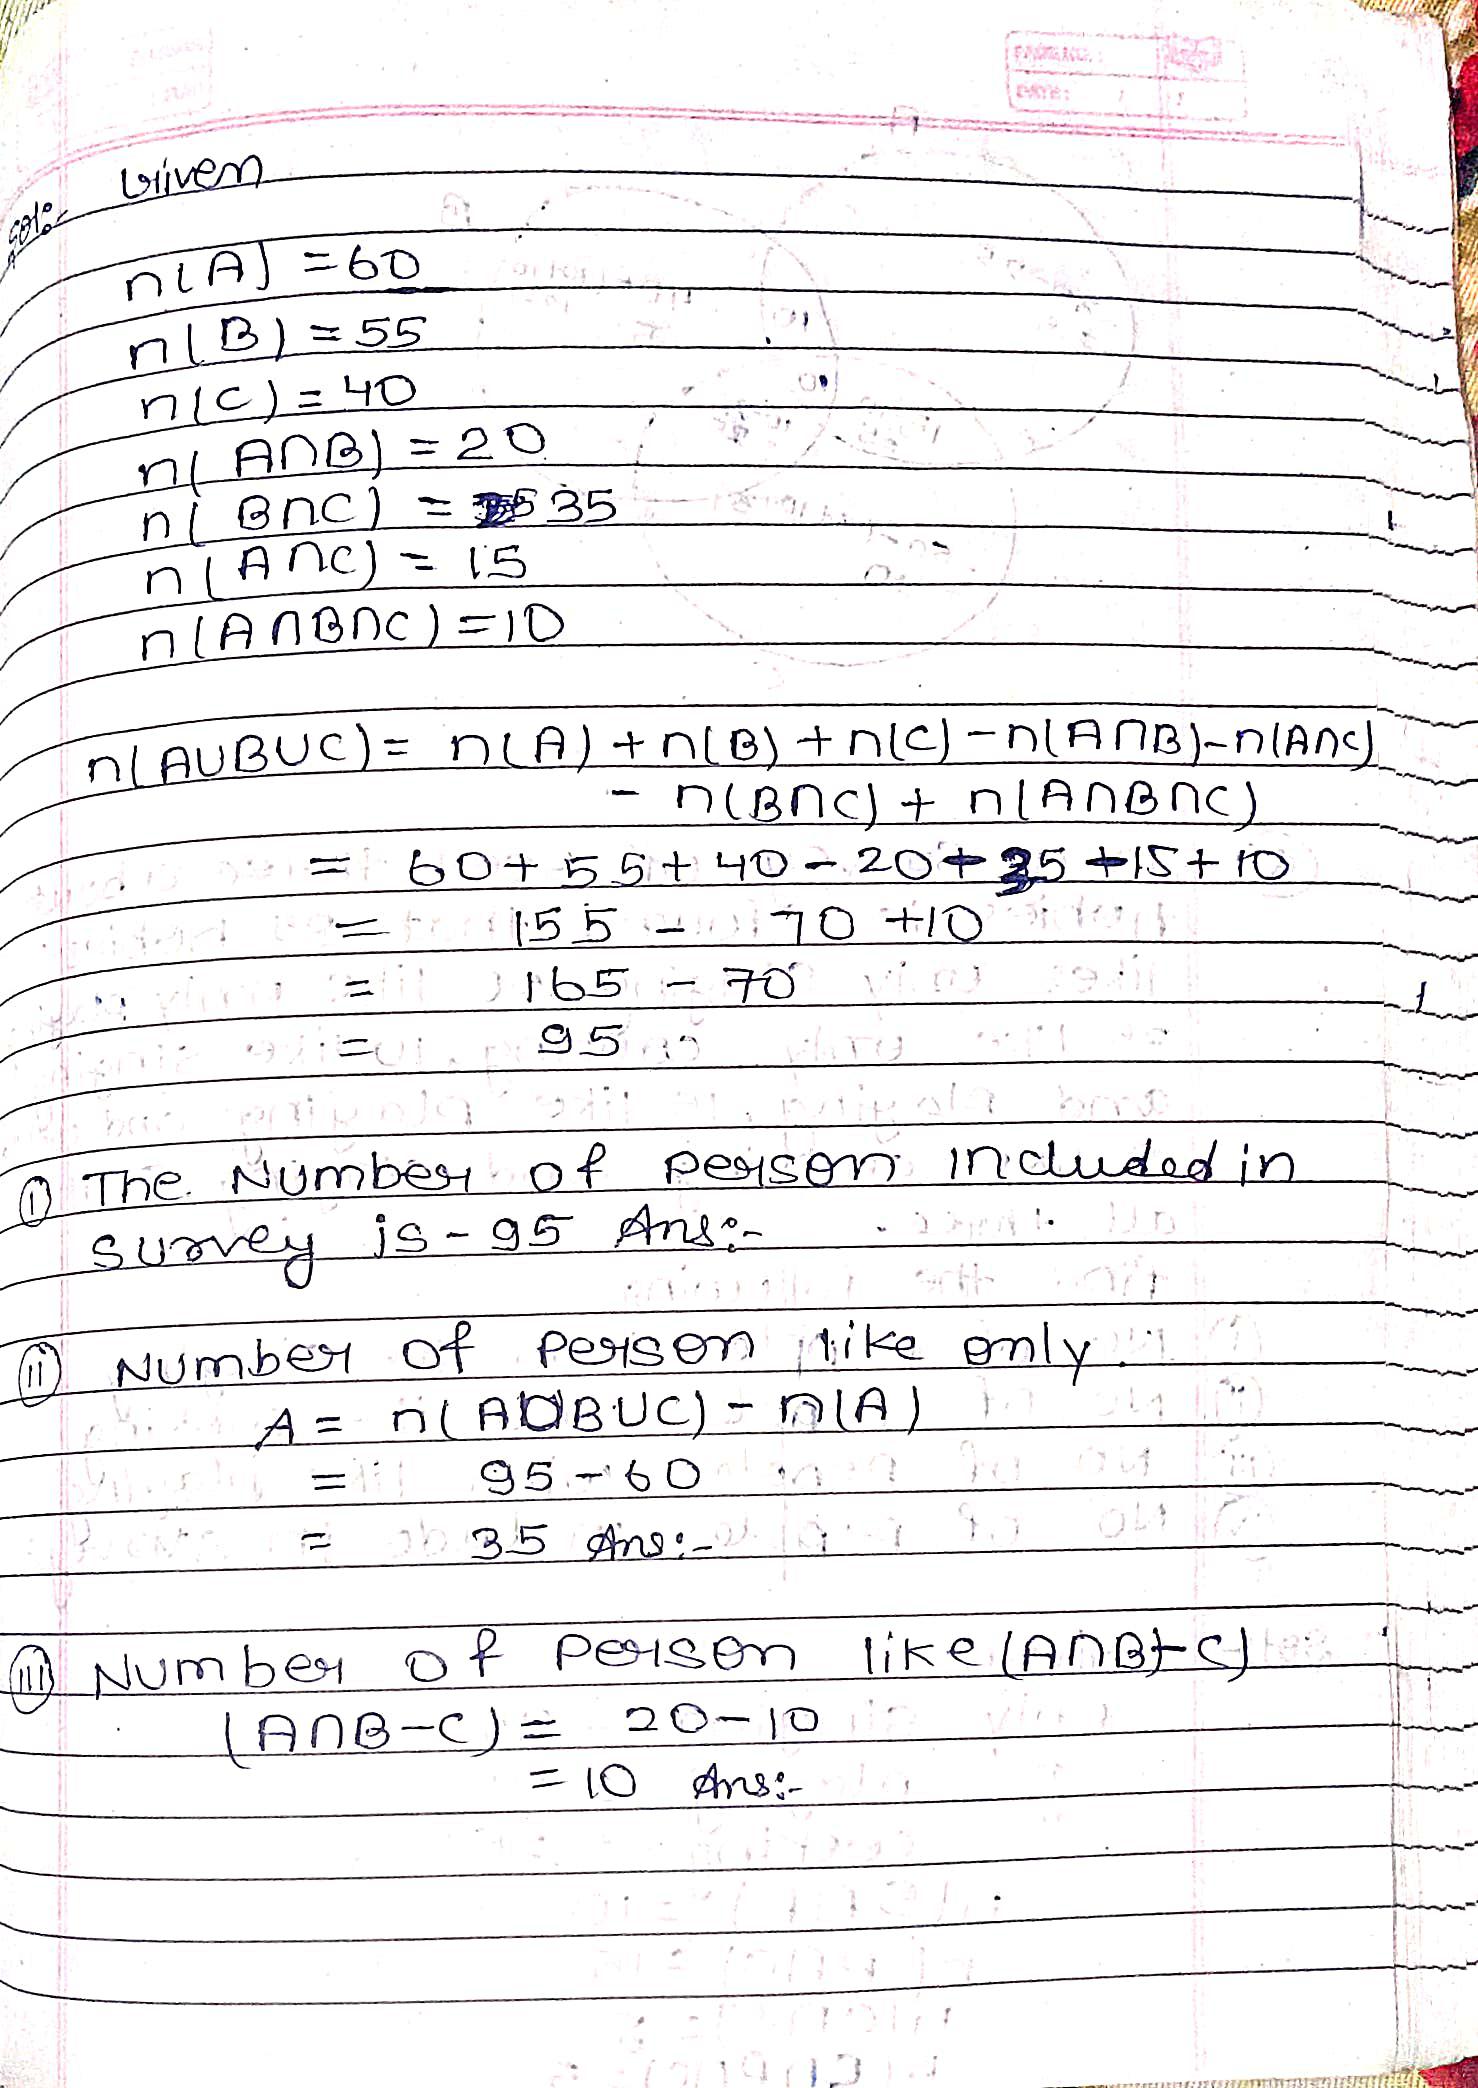 Sol:-
Given
n(A) = 60
n(B) = 55
n(C) = 40
n(A∩B) = 20
n(B∩C) = 35
n(A∩C) = 15
n(A∩B∩C) = 10
n(AUBUC) = n(A) + n(B) + n(C) - n(A∩B) - n(A∩C)
- n(B∩C) + n(A∩B∩C)
= 60 + 55 + 40 - 20 + 35 + 15 + 10
= 155 - 70 + 10
= 165 - 70
= 95
(i) The Number of person included in
survey is - 95 Ans:-
(ii) Number of person like only.
A = n(AUBUC) - n(A)
= 95 - 60
= 35 Ans:-
(iii) Number of person like (A∩B+C)
(A∩B-C) = 20-10
= 10 Ans:-